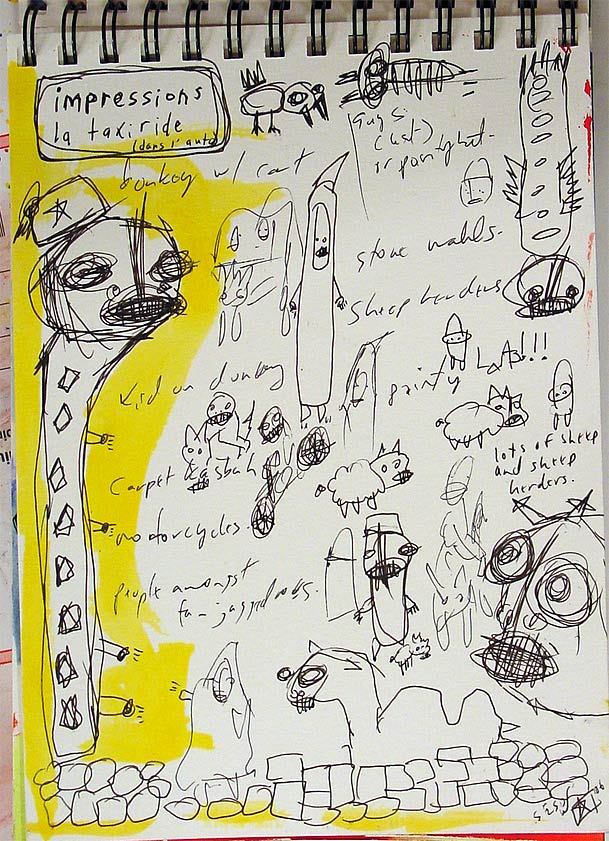 impressions
la taxiride
(dans l'auto)
donkey w/ cart
guys
(ust)
stone walls.
sheep herders
LOTS!!!
pointy
kid on donkey
lots of sheep
and sheep
herders.
carpet kasbah
motorcycles.
people amongst
jagged rocks.